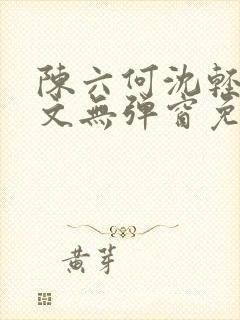 陳六何沈輕
文無彈窗免
黄芽